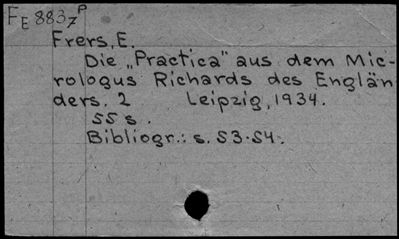 FE 8837P
Frers, E.
Die „Practica" aus dem Mic-
rologus Richards des Englän
ders. 2 Leipzig, 1934.
55 s.
Bibliogr.: s. 53-54.